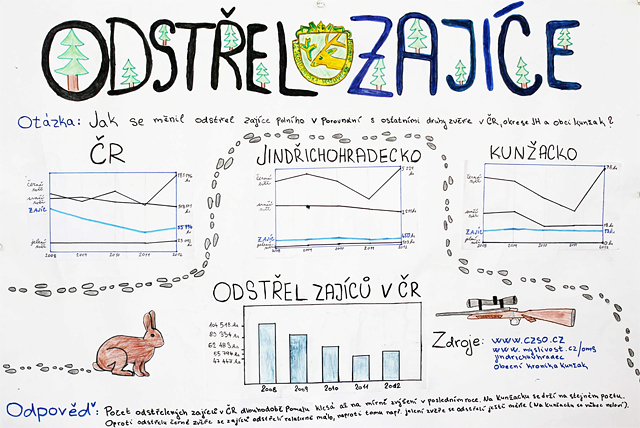 ODSTŘEL ZAJÍCE
Otázka: Jak se měnil odstřel zajíce polního v porovnání s ostatními druhy zvěře v ČR, okrese JH a obci Kunžak?
ČR
JINDŘICHOHRADECKO
KUNŽACKO
černá
srnčí
ZAJÍC
jelení
2008 2009 2010 2011 2012
černá
srnčí
ZAJÍC
jelení
2008 2009 2010 2011 2012
černá
srnčí
ZAJÍC
2008 2009 2010 2011 2012
ODSTŘEL ZAJÍCŮ V ČR
2008 2009 2010 2011 2012
Zdroje: www.czso.cz
www.myslivost.cz/oms
jindrichuhradec
obecní kronika Kunžak
Odpověď: Počet odstřelených zajíců v ČR dlouhodobě pomalu klesá až na mírné zvýšení v posledním roce. Na Kunžacku se drží na stejném počtu.
Oproti odstřelu černé zvěře se zajíců odstřelí relativně málo, naproti tomu např. jelení zvěře se odstřelí ještě méně (Na Kunžacku se vůbec neloví).